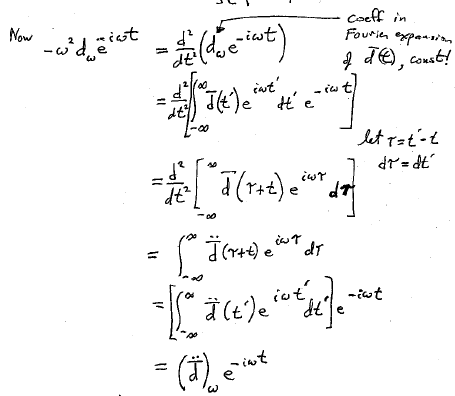 Now -ω² d_ω e^{-iωt} = d²/dt² (d_ω e^{-iωt})
coeff in
Fourier expansion
of d̄(t), const!
= d²/dt² [∫_{-∞}^{∞} d̄(t′) e^{iωt′} dt′ e^{-iωt}]
let τ = t′-t
dτ = dt′
= d²/dt² [∫_{-∞}^{∞} d̄(τ+t) e^{iωτ} dτ]
= ∫_{-∞}^{∞} d̈(τ+t) e^{iωτ} dτ
= [∫_{-∞}^{∞} d̈(t′) e^{iωt′} dt′] e^{-iωt}
= (d̈)_ω e^{-iωt}